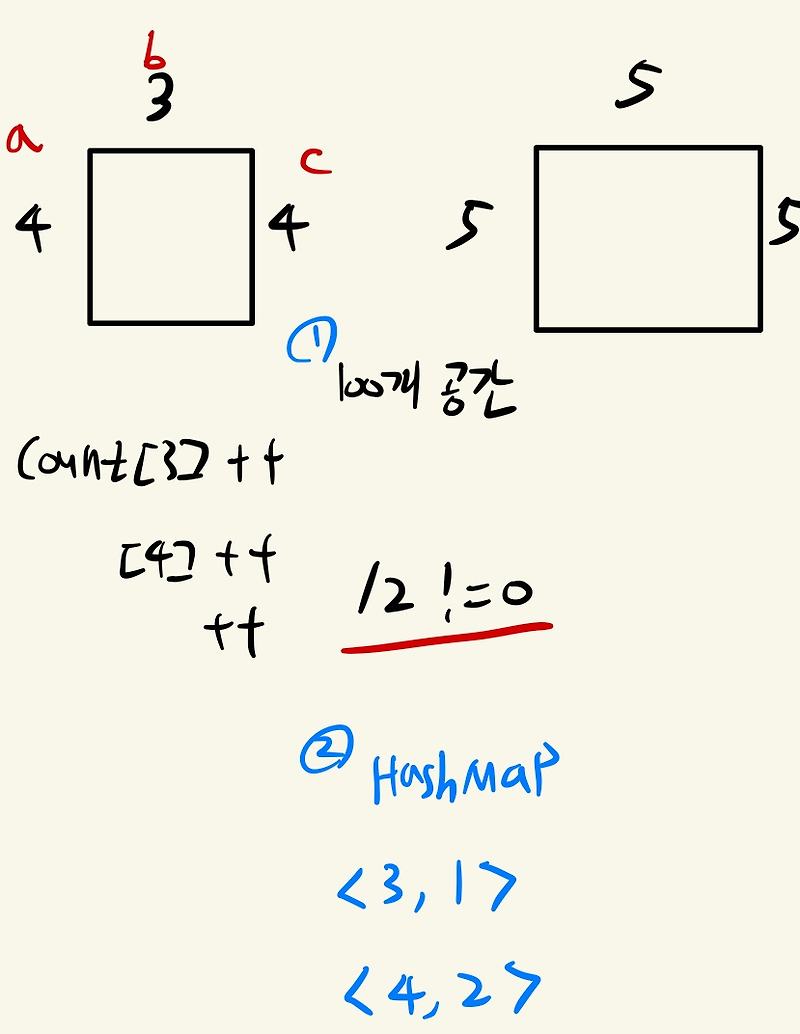 b
3
a
c
4
4
5
5
5
①
100개 공간
Count[3]++
[4]++
++
/2 !=0
②
HashMap
<3,1>
<4,2>